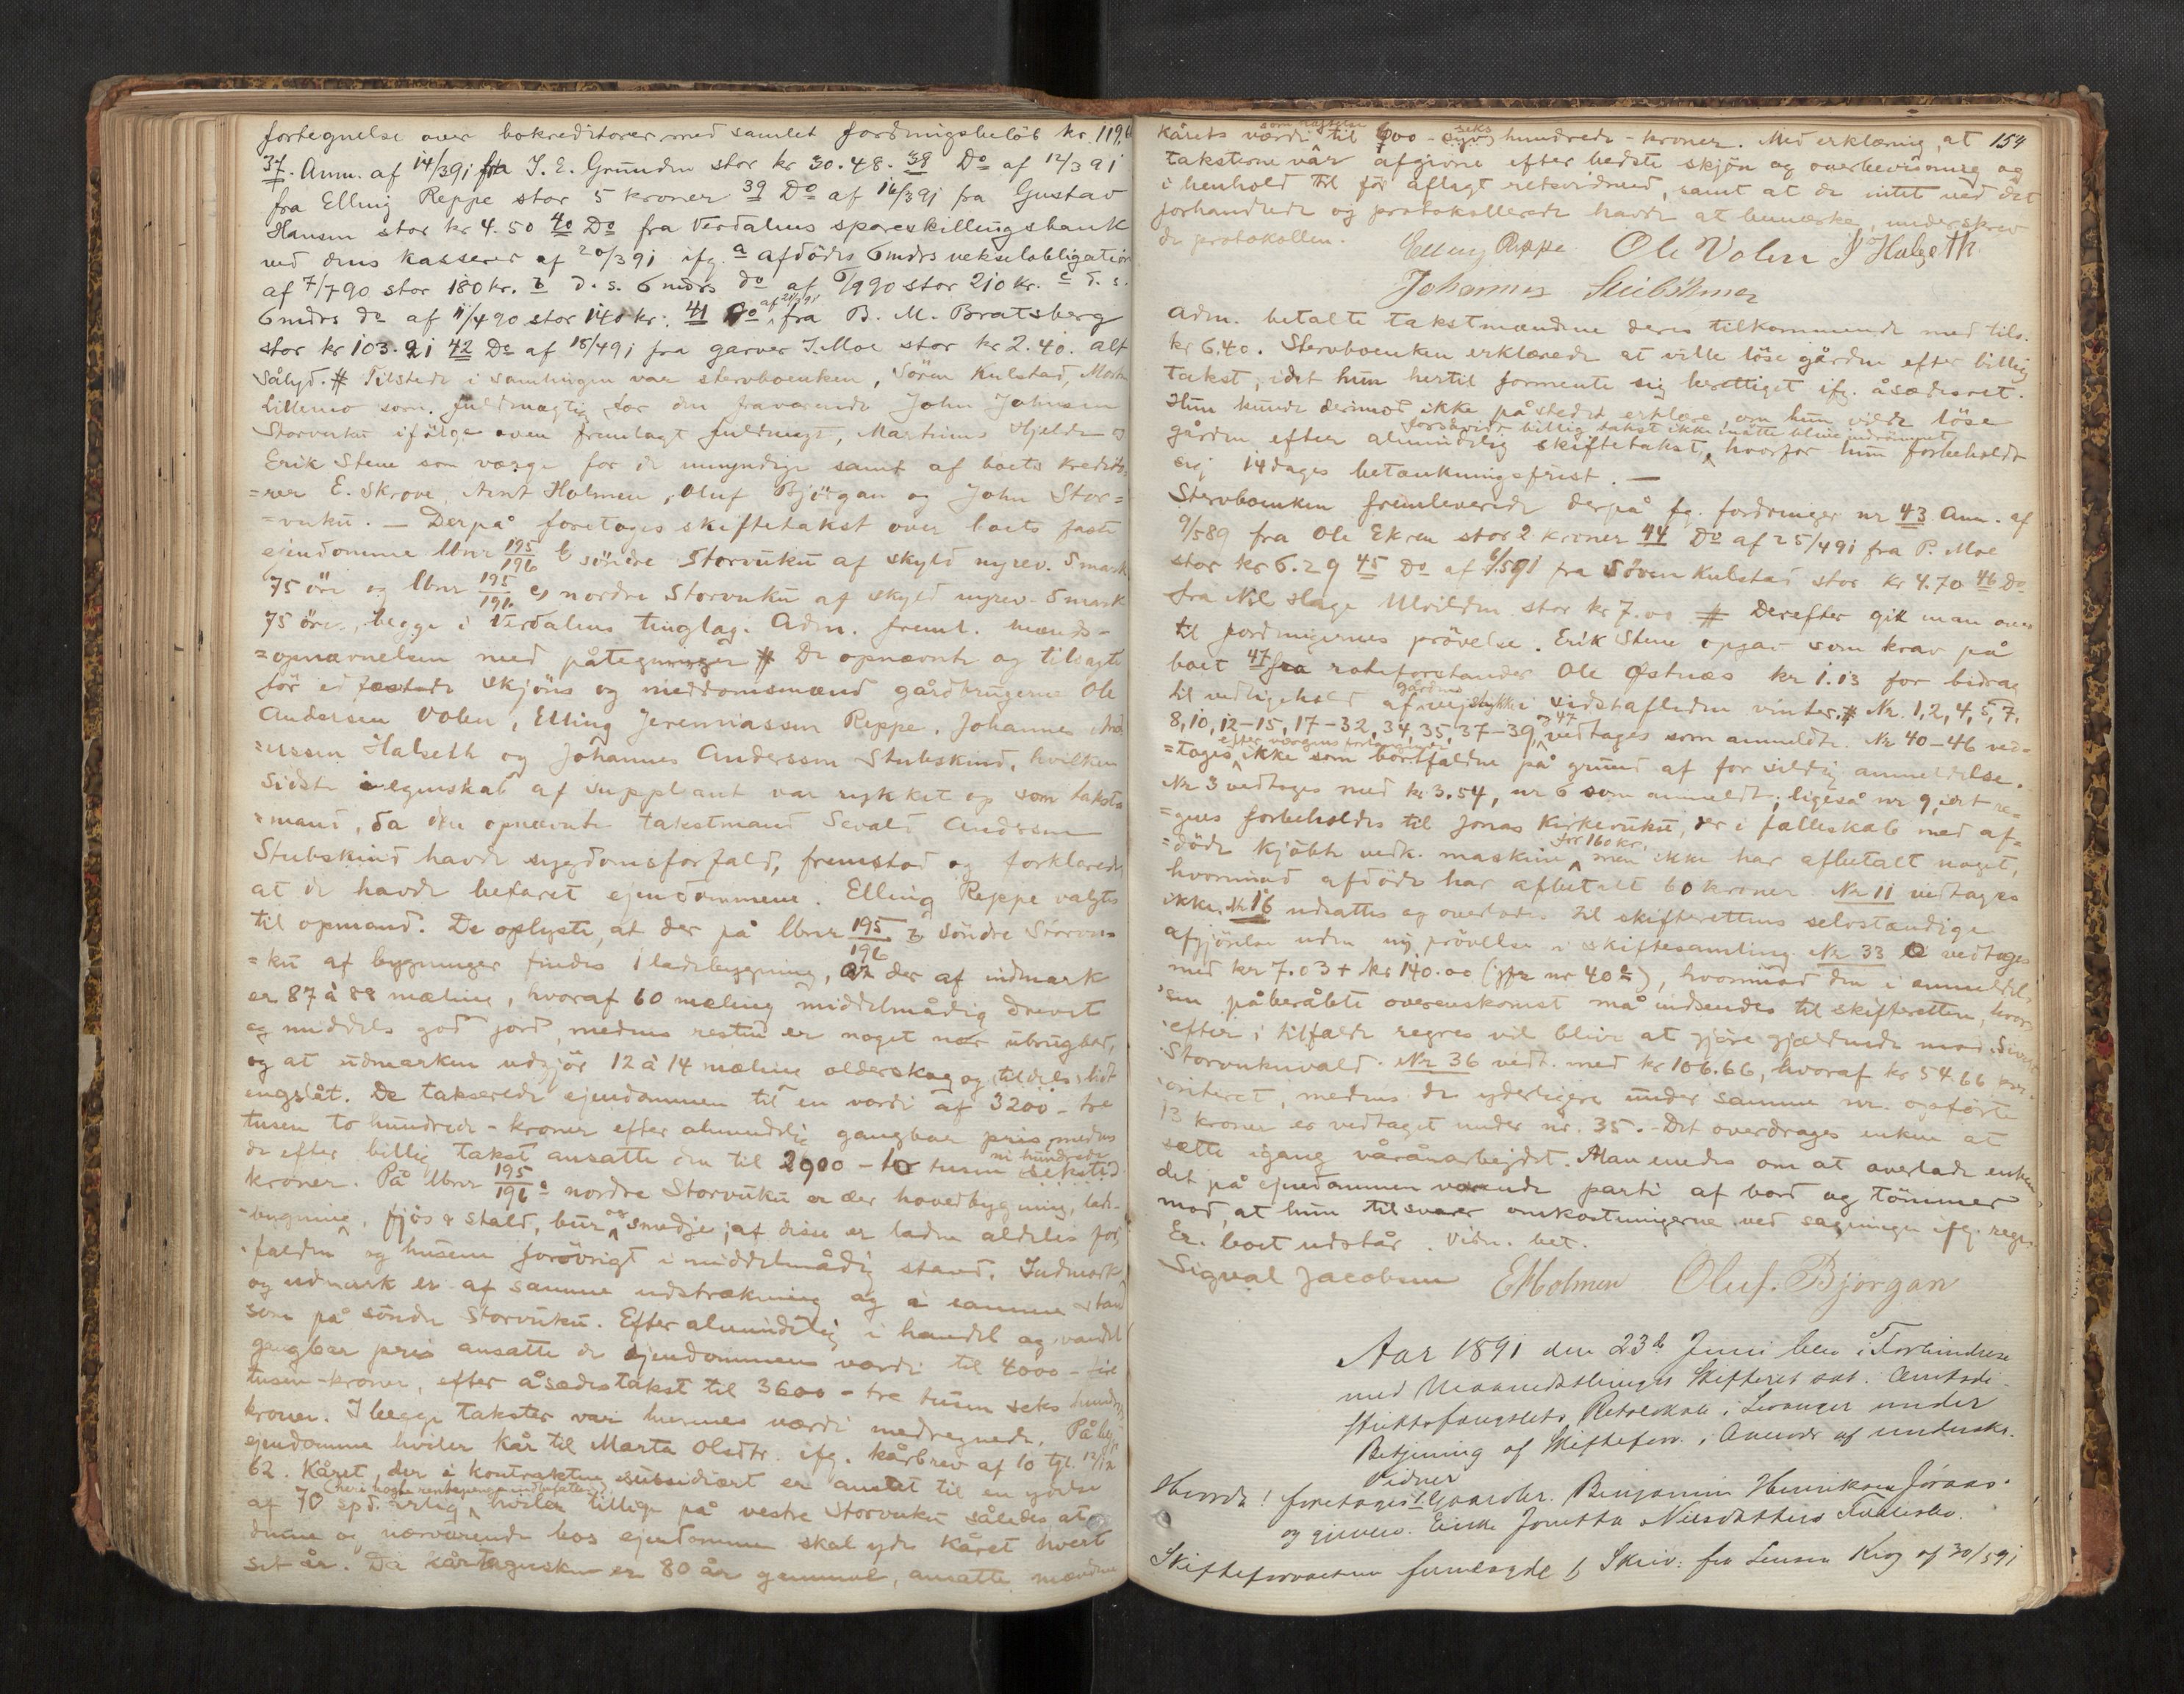 fortegnelse over bokreditorer med samlet fordringsbeløb kr. 119.6
37. Anm. af 14/391 fra J. E. Grunden stor kr 30.48. 38 Do af 12/391
fra Elling Reppe stor 5 kroner 39 Do af 16/391 fra Gustav
Hansen stor kr 4.50 40 Do fra Verdalens spareskillingsbank
ved dens kasserer af 20/391 ifg. a afdødes 6 mdrs vekselobligation
af 7/790 stor 180 kr. b d. s. 6 mdrs do af 6/990 stor 210 kr. c d. s.
6 mdrs do af 11/490 stor 140 kr. 41 Do fra B. M. Bratsberg
stor kr 103.21 42 Do af 15/491 fra garver J. Moe stor kr 2.40. alt
sålyd. # Tilstede i samlingen var stervboenken, Sören Kulstad, Morten
Lillemo som fuldmægtig for den fraværende John Johnsen
Storvuku ifølge oven fremlagt fuldmagt, Martinus Hjelde og
Erik Stene som værge for de umyndige samt af boets kredito-
=rer E. Skrove, Arnt Holmen, Oluf Bjørgan og John Stor=
=vuku. — Derpå foretoges skiftetakst over boets faste
ejendomme lbnr 195/196 b söndre Storvuku af skyld nyrev. 5 mark
75 öre og lbnr 195/196 a nordre Storvuku af skyld nyrev. 5 mark
75 öre, begge i Verdalens tinglag. Adm. freml. mænds-
=opnævnelsen med påtegninger # De opnævnte og tilsagte
för edfæstede skjöns og meddomsmænd gårdbrugerne Ole
Andersen Volen, Elling Jeremiassen Reppe, Johannes And
=ersen Halseth og Johannes Anderssen Stubskind, hvilken
sidste i egenskab af suppleant var rykket op som takst-
=mand, da den opnævnte takstmand Sevald Andersen
Stubskind havde sygdomsforfald, fremstod og forklarede
at de havde befaret ejendommene. Elling Reppe valgtes
til opmand. De oplyste, at der på lbnr 195/196 b Söndre Storvu-
=ku af bygninger findes 1 ladebygning, at der af indmark
er 87 à 88 mæling, hvoraf 60 mæling middelmådig drevet
og middels god jord, medens resten er noget nær ubrugbar,
og at udmarken udgjör 12 à 14 mæling olderskog og tildels lidt
engslåt. De takserede ejendommen til en værdi af 3200 - tre
tusen to hundrede - kroner efter almindelig gangbar pris, medens
de efter billig takst ansatte den til 2900 - to tusen ni hundrede
kroner. På lbnr 195/196 a nordre Storvuku er der hovedbygning, lade-
-bygning, fjös & stald, bur og smedje; af disse er laden aldeles for-
-falden og husene forövrigt i middelmådig stand. Indmark
og udmark er af samme udstrækning og i samme stand
som på söndre Storvuku. Efter almindelig i handel og vandel
gangbar pris ansatte de ejendommens værdi til 4000 - fire
tusen - kroner, efter åsædestakst til 3600 - tre tusen seks hundrede
kroner. I begge takster var husenes værdi medregnede. På begge
ejendomme hviler kår til Marta Olsdtr. ifg. kårbrev af 10 tgl. 12/12
62. Kåret, der i kontrakten subsidiært er ansat til en ydelse
af 70 spd. årlig hviler tillige på vestre Storvuku således at
denne og nærværende bos ejendomme skal yde kåret hvert
sit år. Da kårtagersken er 80 år gammel, ansatte mændene
154
kårets værdi som hæftelse til 600 - seks hundrede - kroner. Med erklæring, at
taksterne var afgivne efter bedste skjön og overbevisning og
i henhold til för aflagt retsvidned, samt at de intet ved det
forhandlede og protokollerede havde at bemærke, underskrev
de protokollen. Elling Reppe Ole Volen J Halseth
Johannes Stubskind
Adm. betalte takstmændene deres tilkommende med tils.
kr 6.40. Stervboenken erklærede at ville löse gården efter billig
takst, idet hun hertil formente sig berettiget ifg. åsædesret.
Hun kunde derimod ikke på stedet erklære, om hun vilde löse
gården efter almindelig skiftetakst, forsåvidt billig takst ikke måtte blive indrömmet, hvorfor hun forbeholdt
sig 14 dages betænkningsfrist. —
Stervboenken fremleverede derpå fg. fordringer nr 43 Anm. af
9/589 fra Ole Ekren stor 2 kroner 44 Do af 25/491 fra P. Moe
stor kr 6.29 45 Do af 6/591 fra Sören Kulstad stor kr 4.70 46 Do
fra Nils Hage Ulvilden stor kr 7.00 # Derefter gik man over
til fordringernes prövelse. Erik Stene opgav som krav på
boet 47 fra rodeforstander Ole Østnæs kr 1.13 for bidrag
til vedligehold af gårdens vejstykke i sidstafledne vinter. # Nr. 1, 2, 4, 5, 7,
8, 10, 12-15, 17-32, 34, 35, 37-39, & 47 vedtages som anmeldte. Nr 40-46 ved-
=tages ikke som bortfaldne på grund af for sildig anmeldelse.
Nr 3 vedtages med kr 3.54, nr 6 som anmeldt, ligeså nr 9, idet re-
=gres forbeholdes til Jonas Kirkevuku, der i fælleskab med af-
=döde kjöbte vedk. maskine for 160 kr. men ikke har afbetalt noget,
hvorimod afdöde har afbetalt 60 kroner. Nr 11 vedtages
ikke. Nr. 16 udsattes og overlodes til skifterettens selvstændige
afgjörelse uden ny prövelse i skiftesamling. Nr 33 vedtages
med kr 7.03 + kr 140.00 (jfr nr 40 c), hvorimod den i anmeldel-
sen påberåbte overenskomst må indsendes til skifteretten, hvor-
efter i tilfælde regres vil blive at gjöre gjældende mod Sivert
Storvukuvald. Nr 36 vedt. med kr 106.66, hvoraf kr 54.66 pri-
oriteret, medens de yderligere under samme nr. opförte
13 kroner er vedtaget under nr. 35. - Det overdrages enken at
sætte igang våronnarbejdet. Man enedes om at overlade enken
det på ejendommen værende parti af bord og tömmer
mod, at hun tilsvarer omkostningerne ved sagningen ifg. regn.
Ex. boet udstår. Vidn. bet.
Sigval Jacobsen E Holmen Oluf. Bjørgan
Aar 1891 den 23de Juni blev i Forbindelse
med Maanedsthinget Skifteret sat i Amtsdi-
striktsfængslets Retslokale i Levanger under
Betjening af Skifteforv. i Overvær af underskr.
Vidner
Hvorda! foretoges 1. Gaardbr. Benjamin Henriksen Jöraas
og gjenlev. Enke Jonetta Nilsdatters Fællesbo.
Skifteforvalteren fremlagde b Skriv. fra Lensm. Krog af 30/591